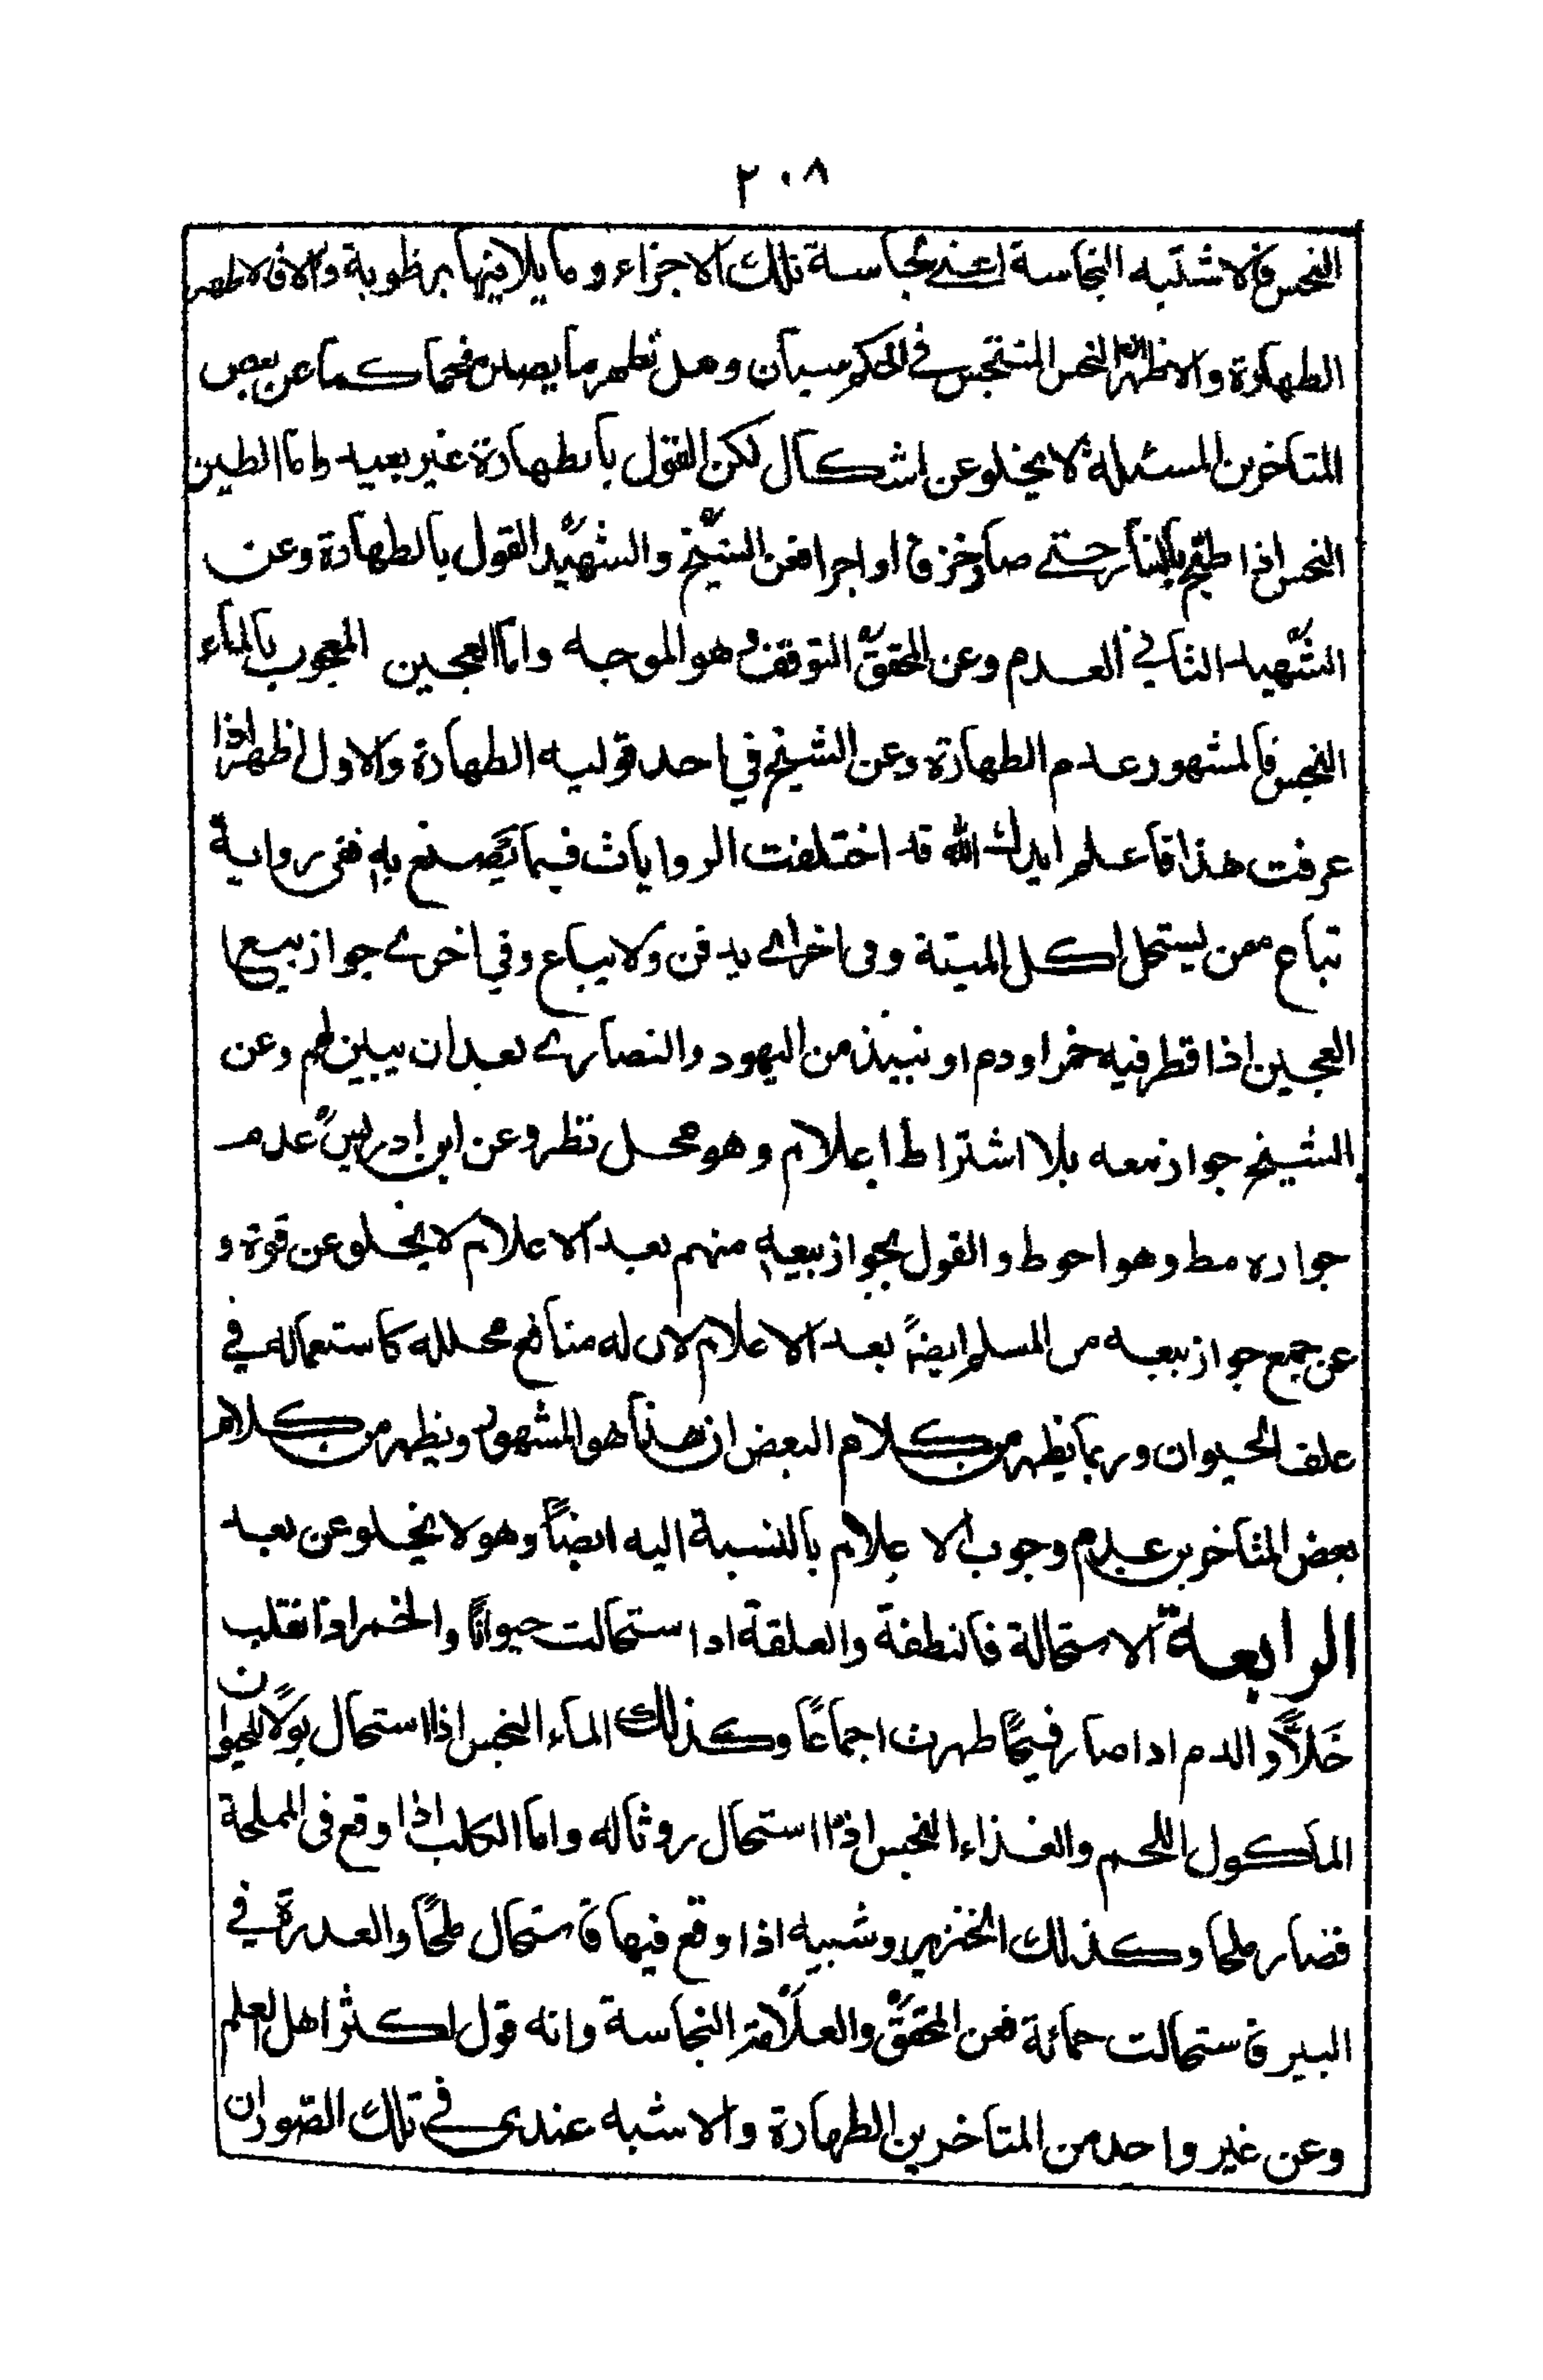 ٢٠٨
النجس فالاشبه النجاسة اعنے نجاسة تلك الاجزاء وما يلاقيها برطوبة والا فالاظهر
الطهارة والاظهر ان النجس المتنجس فے الحكم سيان وهل تطهر ما يصير فحما كما عن بعض
المتاخرين المسئلة لا يخلو عن اشكال لكن القول بالطهارة غير بعيد واما الطين
النجس اذا طبخ بالنار حتے صار خزفا او اجرا فعن الشيخ والشهيد القول بالطهارة وعن
الشهيد الثاني العدم وعن المحقق التوقف وهو الموجه واما العجين المعجون بالماء
النجس فالمشهور عدم الطهارة وعن الشيخ في احد قوليه الطهارة والاول اظهر اذا
عرفت هذا فاعلم ايدك الله قد اختلفت الروايات فيما يصنع به ففى رواية
تباع ممن يستحل اكل الميتة وفى اخراے يدفن ولا يباع وفي اخرے جواز بيع
العجين اذا قطر فيه خمر او دم او نبيذ من اليهود والنصارے بعد ان يبين لهم وعن
الشيخ جواز بيعه بلا اشتراط اعلام وهو محل نظر وعن ابن ادريس عدم
جوازه مط وهو احوط والقول بجواز بيعه منهم بعد الاعلام لا يخلو عن قوة و
عن جمع جواز بيعه من المسلم ايضاً بعد الاعلام لان له منافع محلله كاستعماله في
علف الحيوان وربما يظهر من كلام البعض ان هذا هو المشهور ويظهر من كلام
بعض المتاخرين عدم وجوب الاعلام بالنسبة اليه ايضاً وهو لا يخلو عن بعد
الرابعة الاستحالة فالنطفة والعلقة اذا استحالت حيواناً والخمر اذا نقلب
خَلاًّ والدم اذا صار قيحًا طهرت اجماعًا وكذلك الماء النجس اذا استحال بولاً للحيوان
الماكول اللحم والغذاء النجس اذا استحال روثا له واما الكلب اذا وقع فى المملحة
فصار ملحا وكذلك الخنزير وشبيه اذا وقع فيها فاستحال ملحًا والعذرة في
البير فاستحالت حمائة فعن المحقق والعلامة النجاسة وانه قول اكثر اهل العلم
وعن غير واحد من المتاخرين الطهارة والاشبه عندى فے تلك الصور ان